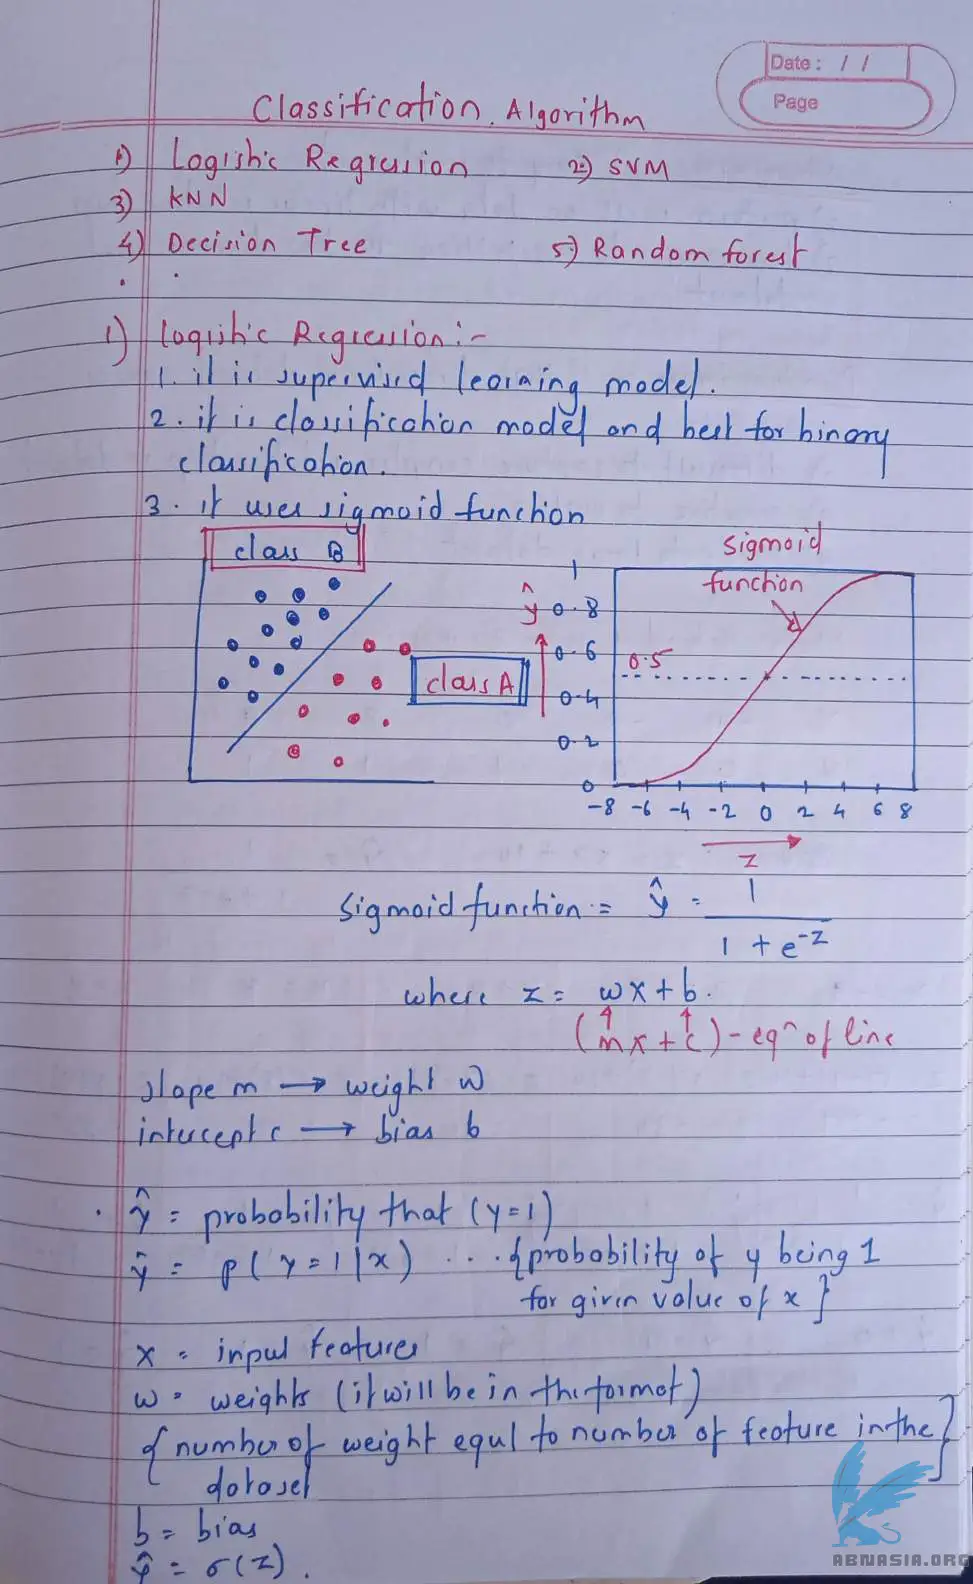 Date : / /
Page
Classification Algorithm
1) Logistic Regression 2) SVM
3) KNN
4) Decision Tree 5) Random forest
1) Logistic Regression :-
1. it is supervised learning model.
2. it is classification model and best for binary
classification.
3. it uses sigmoid function
class B
class A
sigmoid
function
ŷ
1
0.8
0.6
0.5
0.4
0.2
0
-8 -6 -4 -2 0 2 4 6 8
z
Sigmoid function = ŷ = 1
1 + e^-z
where z = wx + b.
(mx + c) - eqn of line
slope m → weight w
intercept c → bias b
ŷ = probability that (y=1)
ŷ = p(y=1|x) ... {probability of y being 1
for given value of x}
x = input features
w = weights (it will be in the format)
{number of weight equl to number of feature in the
dataset}
b = bias
ŷ = σ(z).
ABNASIA.ORG